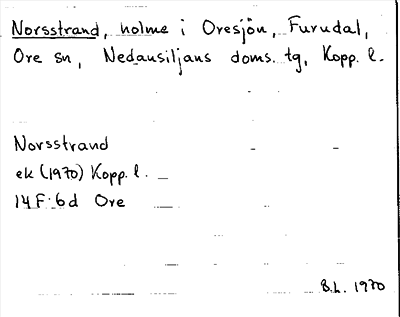 Norsstrand, holme i Oresjön, Furudal,
Ore sn, Nedansiljans doms. tg, Kopp. l.
Norsstrand
ek (1970) Kopp. l.
14 F:6d Ore
B.L. 1970